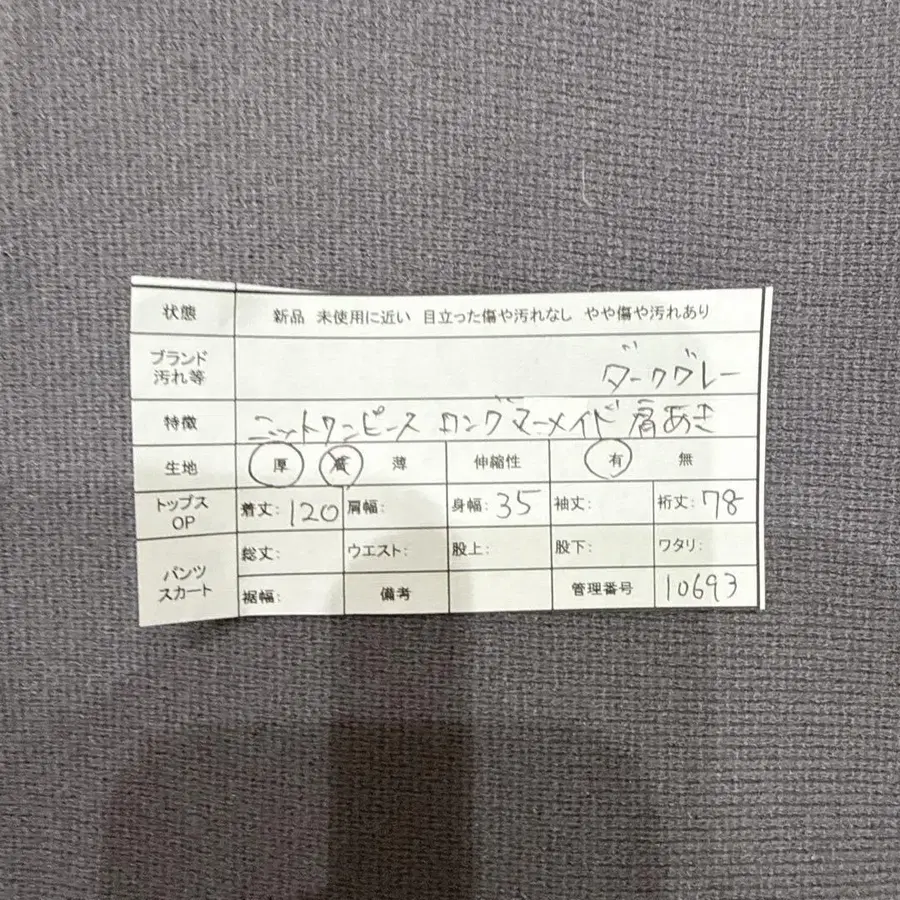 状態 新品 未使用に近い 目立った傷や汚れなし やや傷や汚れあり
ブランド
汚れ等 ダークグレー
特徴 ニットワンピース ロングマーメイド 肩あき
生地 厚 薄 伸縮性 有 無
トップス
OP 着丈: 120 肩幅: 身幅: 35 袖丈: 裄丈: 78
パンツ
スカート 総丈: ウエスト: 股上: 股下: ワタリ:
裾幅: 備考 管理番号 10693